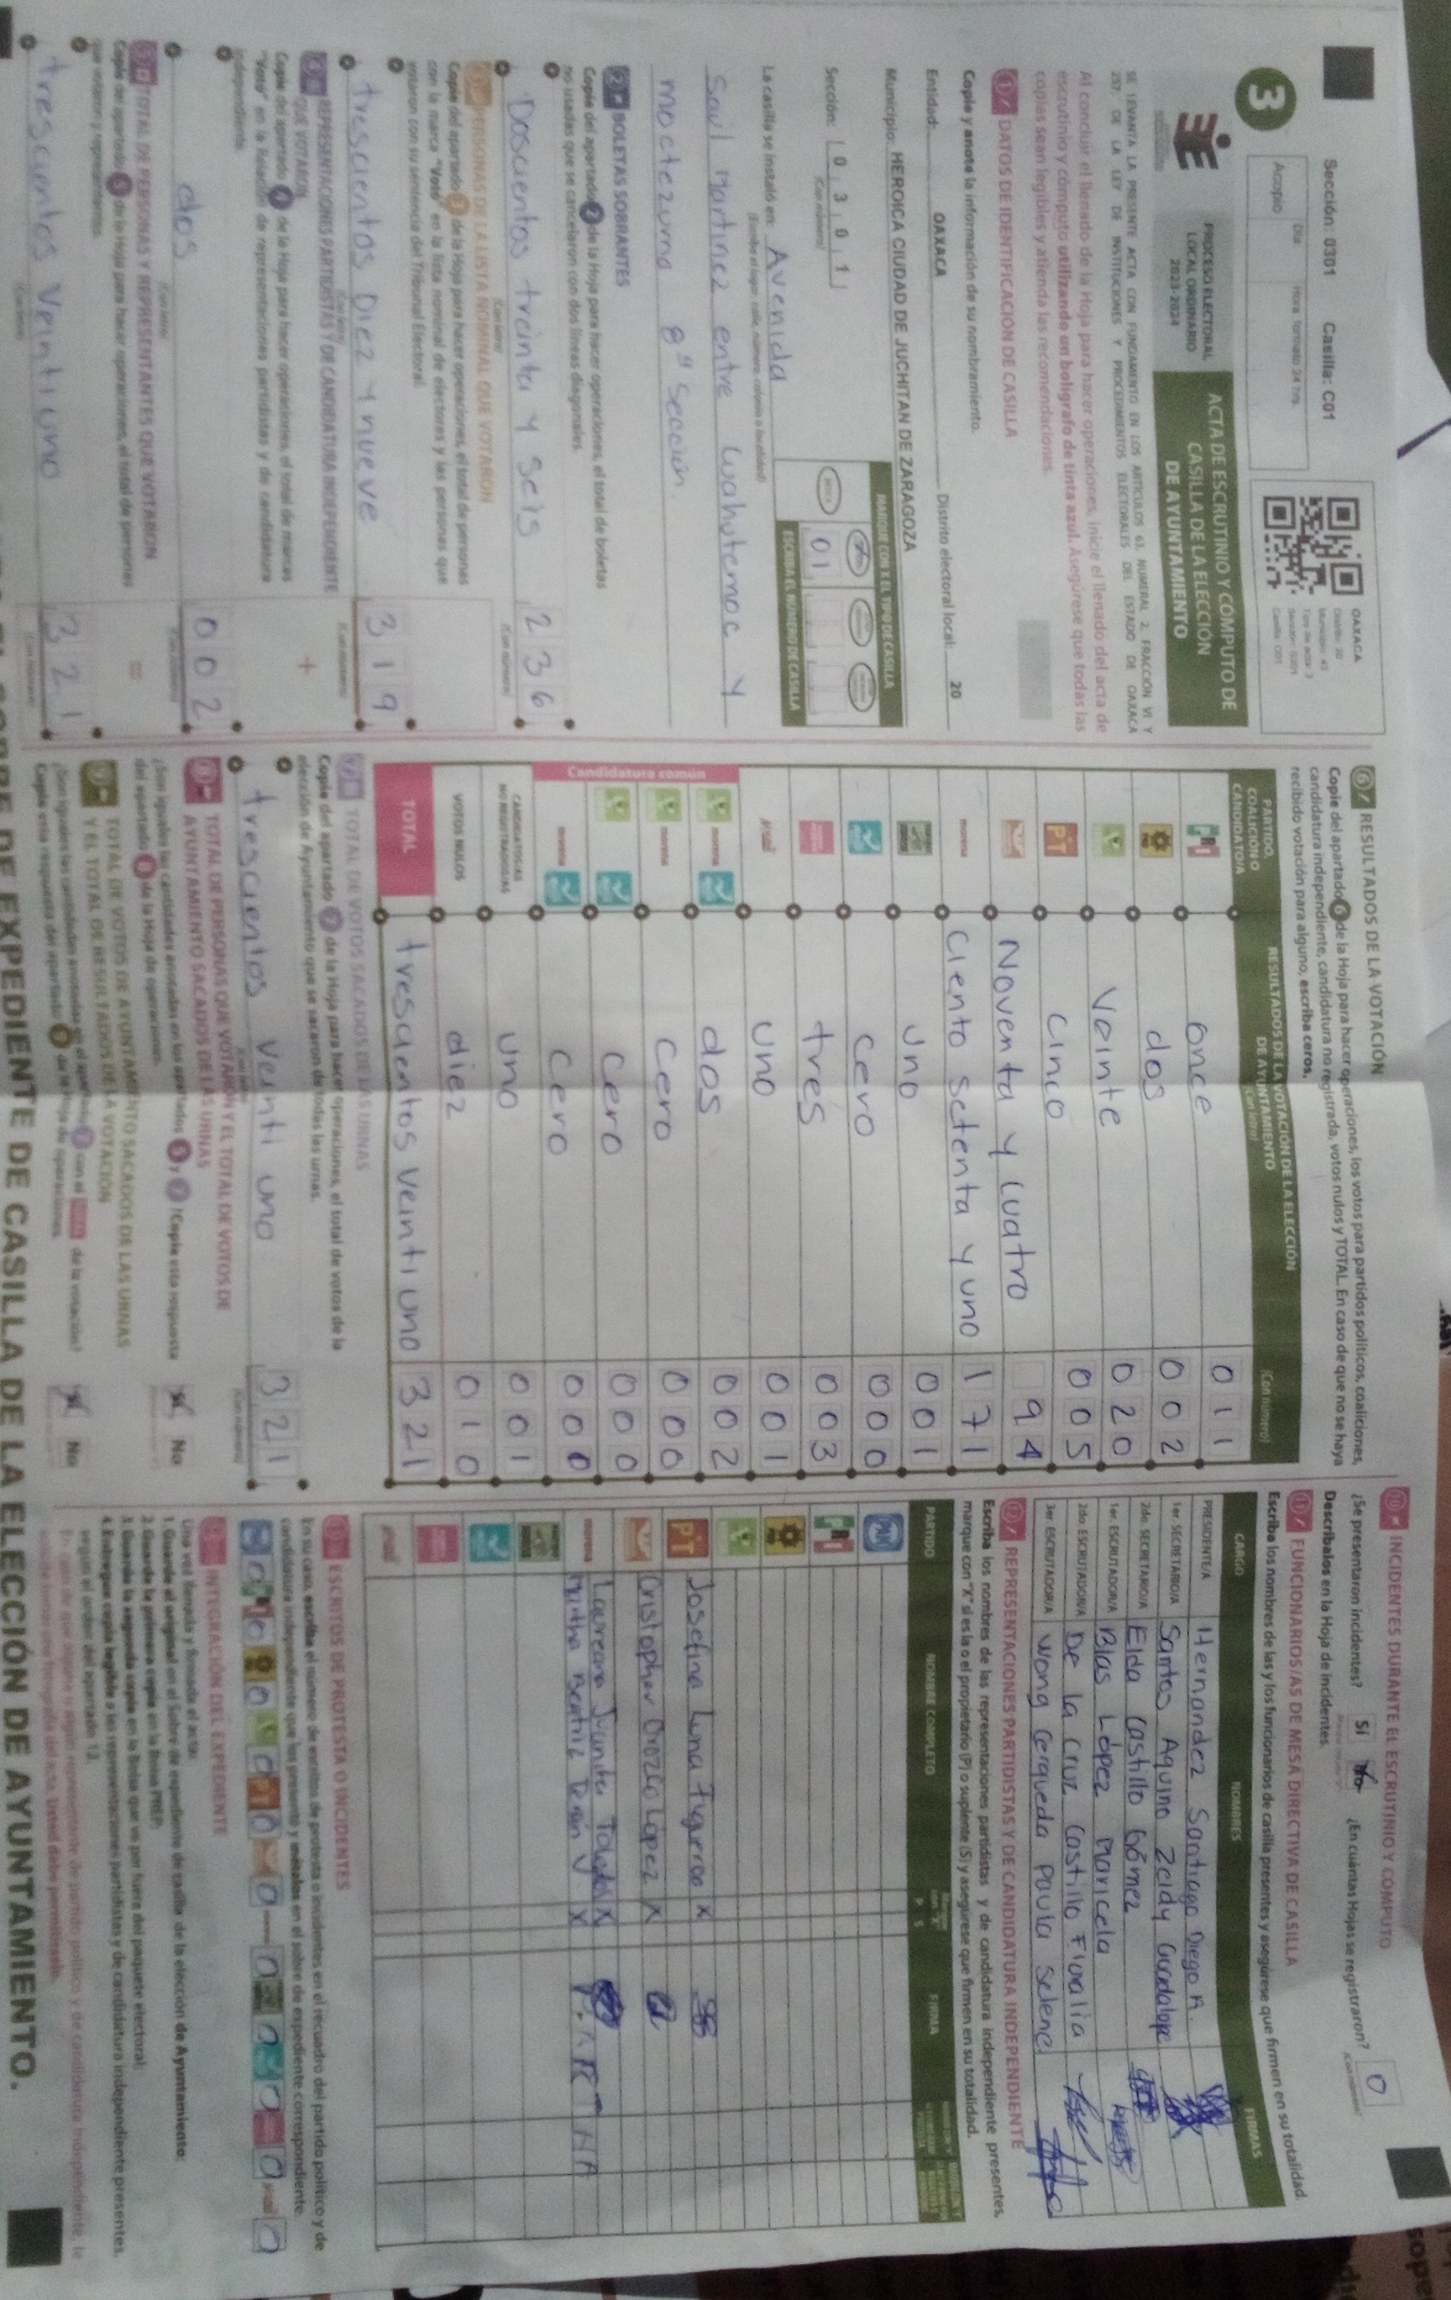 Sección: 0301 Casilla: C01
Acopio
Día
Hora formato 24 hrs.
OAXACA
3
PROCESO ELECTORAL
LOCAL ORDINARIO
2023-2024
ACTA DE ESCRUTINIO Y CÓMPUTO DE
CASILLA DE LA ELECCIÓN
DE AYUNTAMIENTO
SE LEVANTA LA PRESENTE ACTA CON FUNDAMENTO EN LOS ARTÍCULOS 63, NUMERAL 2, FRACCIÓN VI Y
257, DE LA LEY DE INSTITUCIONES Y PROCEDIMIENTOS ELECTORALES DEL ESTADO DE OAXACA
Al concluir el llenado de la Hoja para hacer operaciones, inicie el llenado del acta de
escrutinio y cómputo utilizando un bolígrafo de tinta azul. Asegúrese que todas las
copias sean legibles y atienda las recomendaciones.
1 DATOS DE IDENTIFICACIÓN DE CASILLA
Copie y anote la información de su nombramiento.
Entidad: OAXACA Distrito electoral local: 20
Municipio: HEROICA CIUDAD DE JUCHITAN DE ZARAGOZA
Sección: 0 3 0 1
(Con número)
MARQUE CON X EL TIPO DE CASILLA
01
ESCRIBA EL NÚMERO DE CASILLA
La casilla se instaló en: Avenida
(Escriba el lugar: calle, número, colonia o localidad)
Saul Martinez entre Cuahutemoc y
moctezuma 8ª Sección
2 BOLETAS SOBRANTES
Copie del apartado 2 de la Hoja para hacer operaciones, el total de boletas
no usadas que se cancelaron con dos líneas diagonales.
Doscientos treinta y seis 236
(Con letra) (Con número)
3 PERSONAS DE LA LISTA NOMINAL QUE VOTARON
Copie del apartado 3 de la Hoja para hacer operaciones, el total de personas
con la marca "Votó" en la lista nominal de electores y las personas que
votaron con su sentencia del Tribunal Electoral.
trescientos Diez y nueve 319
(Con letra) (Con número)
4 REPRESENTACIONES PARTIDISTAS Y DE CANDIDATURA INDEPENDIENTE
QUE VOTARON
Copie del apartado 4 de la Hoja para hacer operaciones, el total de marcas
"Votó" en la Relación de representaciones partidistas y de candidatura
independiente.
+
dos 002
(Con letra) (Con número)
5 TOTAL DE PERSONAS Y REPRESENTANTES QUE VOTARON
Copie del apartado 5 de la Hoja para hacer operaciones, el total de personas
que votaron y representantes.
=
trescientos Veintiuno 321
(Con letra) (Con número)
6 RESULTADOS DE LA VOTACIÓN
Copie del apartado 6 de la Hoja para hacer operaciones, los votos para partidos políticos, coaliciones,
candidatura independiente, candidatura no registrada, votos nulos y TOTAL. En caso de que no se haya
recibido votación para alguno, escriba ceros.
PARTIDO,
COALICIÓN O
CANDIDATO/A
RESULTADOS DE LA VOTACIÓN DE LA ELECCIÓN
DE AYUNTAMIENTO
(Con letra) (Con número)
PRI once 011
PRD dos 002
Veinte 020
PT cinco 005
Noventa y cuatro 94
morena Ciento setenta y uno 171
uno 001
cero 000
tres 003
uno 001
Candidatura común
morena dos 002
morena cero 000
cero 000
morena cero 000
CANDIDATOS/AS
NO REGISTRADOS/AS uno 001
VOTOS NULOS diez 010
TOTAL trescientos veintiuno 321
7 TOTAL DE VOTOS SACADOS DE LAS URNAS
Copie del apartado 7 de la Hoja para hacer operaciones, el total de votos de la
elección de Ayuntamiento que se sacaron de todas las urnas.
trescientos veinti uno 321
(Con letra) (Con número)
8 TOTAL DE PERSONAS QUE VOTARON Y EL TOTAL DE VOTOS DE
AYUNTAMIENTO SACADOS DE LAS URNAS
¿Son iguales las cantidades anotadas en los apartados 5 y 7? Copie esta respuesta
del apartado 8 de la Hoja de operaciones.
No
9 TOTAL DE VOTOS DE AYUNTAMIENTO SACADOS DE LAS URNAS
Y EL TOTAL DE RESULTADOS DE LA VOTACIÓN
No
10 INCIDENTES DURANTE EL ESCRUTINIO Y CÓMPUTO
¿Se presentaron incidentes? Sí No ¿En cuántas Hojas se registraron? 0
Descríbalos en la Hoja de incidentes.
11 FUNCIONARIOS/AS DE MESA DIRECTIVA DE CASILLA
Escriba los nombres de las y los funcionarios de casilla presentes y asegúrese que firmen en su totalidad.
CARGO NOMBRES FIRMAS
PRESIDENTE/A Hernandez Santiago Diego A.
1er. SECRETARIO/A Santos Aquino Zeidy Guadalupe
2do. SECRETARIO/A Elda Castillo Gómez
1er. ESCRUTADOR/A Blas López Maricela
2do. ESCRUTADOR/A De la Cruz Castillo Floralia
3er. ESCRUTADOR/A Wong Cerqueda Paula Selene
12 REPRESENTACIONES PARTIDISTAS Y DE CANDIDATURA INDEPENDIENTE
Escriba los nombres de las representaciones partidistas y de candidatura independiente presentes,
marque con "X" si es la o el propietario (P) o suplente (S) y asegúrese que firmen en su totalidad.
PARTIDO NOMBRE COMPLETO P S FIRMA
PAN
PRI
PRD
PT Josefina Luna Figueroa X
Cristopher Orozco López X
morena
13 ESCRITOS DE PROTESTA O INCIDENTES
En su caso, escriba el número de escritos de protesta o incidentes en el recuadro del partido político y de
candidatura independiente que los presentó y métalos en el sobre de expediente correspondiente.
INTEGRACIÓN DEL EXPEDIENTE
Una vez llenada y firmada el acta:
1. Guarde el original en el Sobre de expediente de casilla de la elección de Ayuntamiento;
2. Guarde la primera copia en la Bolsa PREP;
3. Guarde la segunda copia en la Bolsa que va por fuera del paquete electoral;
4. Entregue copia legible a las representaciones partidistas y de candidatura independiente presentes,
según el orden del apartado 12.
SOBRE DE EXPEDIENTE DE CASILLA DE LA ELECCIÓN DE AYUNTAMIENTO.